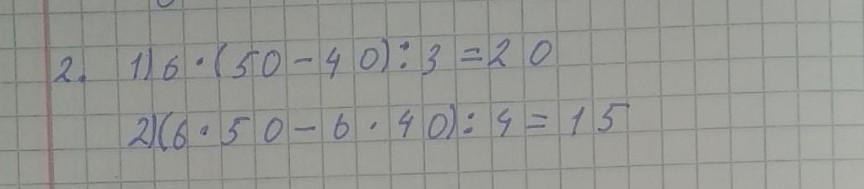 2. 1) 6 · (50 - 40) : 3 = 20
2) (6 · 50 - 6 · 40) : 4 = 15